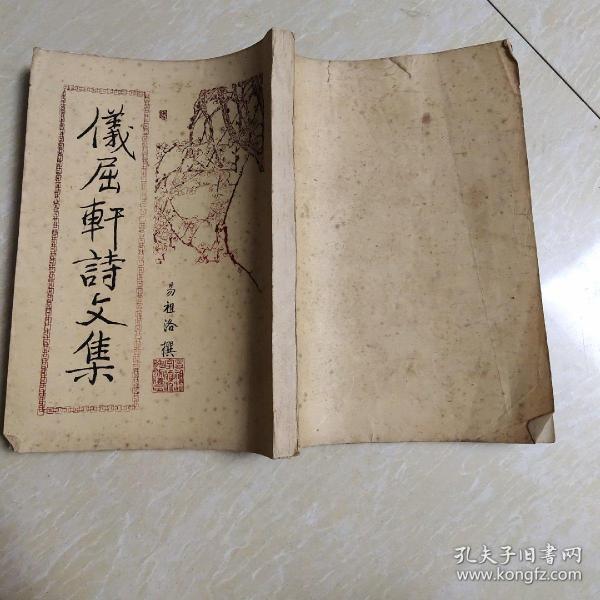 儀屈軒詩文集
易祖洛 撰
孔夫子旧书网
www.kongfz.com